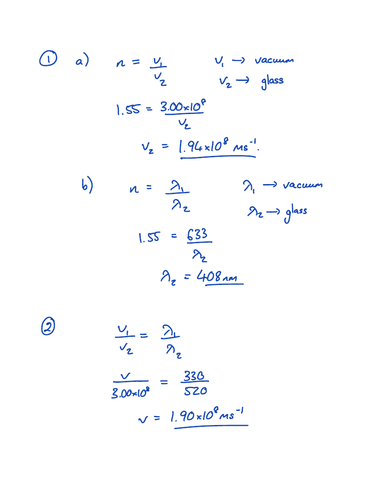 ① a) n = v₁/v₂ v₁ → vacuum
v₂ → glass
1.55 = 3.00×10⁸/v₂
v₂ = 1.94×10⁸ ms⁻¹.
b) n = λ₁/λ₂ λ₁ → vacuum
λ₂ → glass
1.55 = 633/λ₂
λ₂ = 408nm
② v₁/v₂ = λ₁/λ₂
v/3.00×10⁸ = 330/520
v = 1.90×10⁸ ms⁻¹